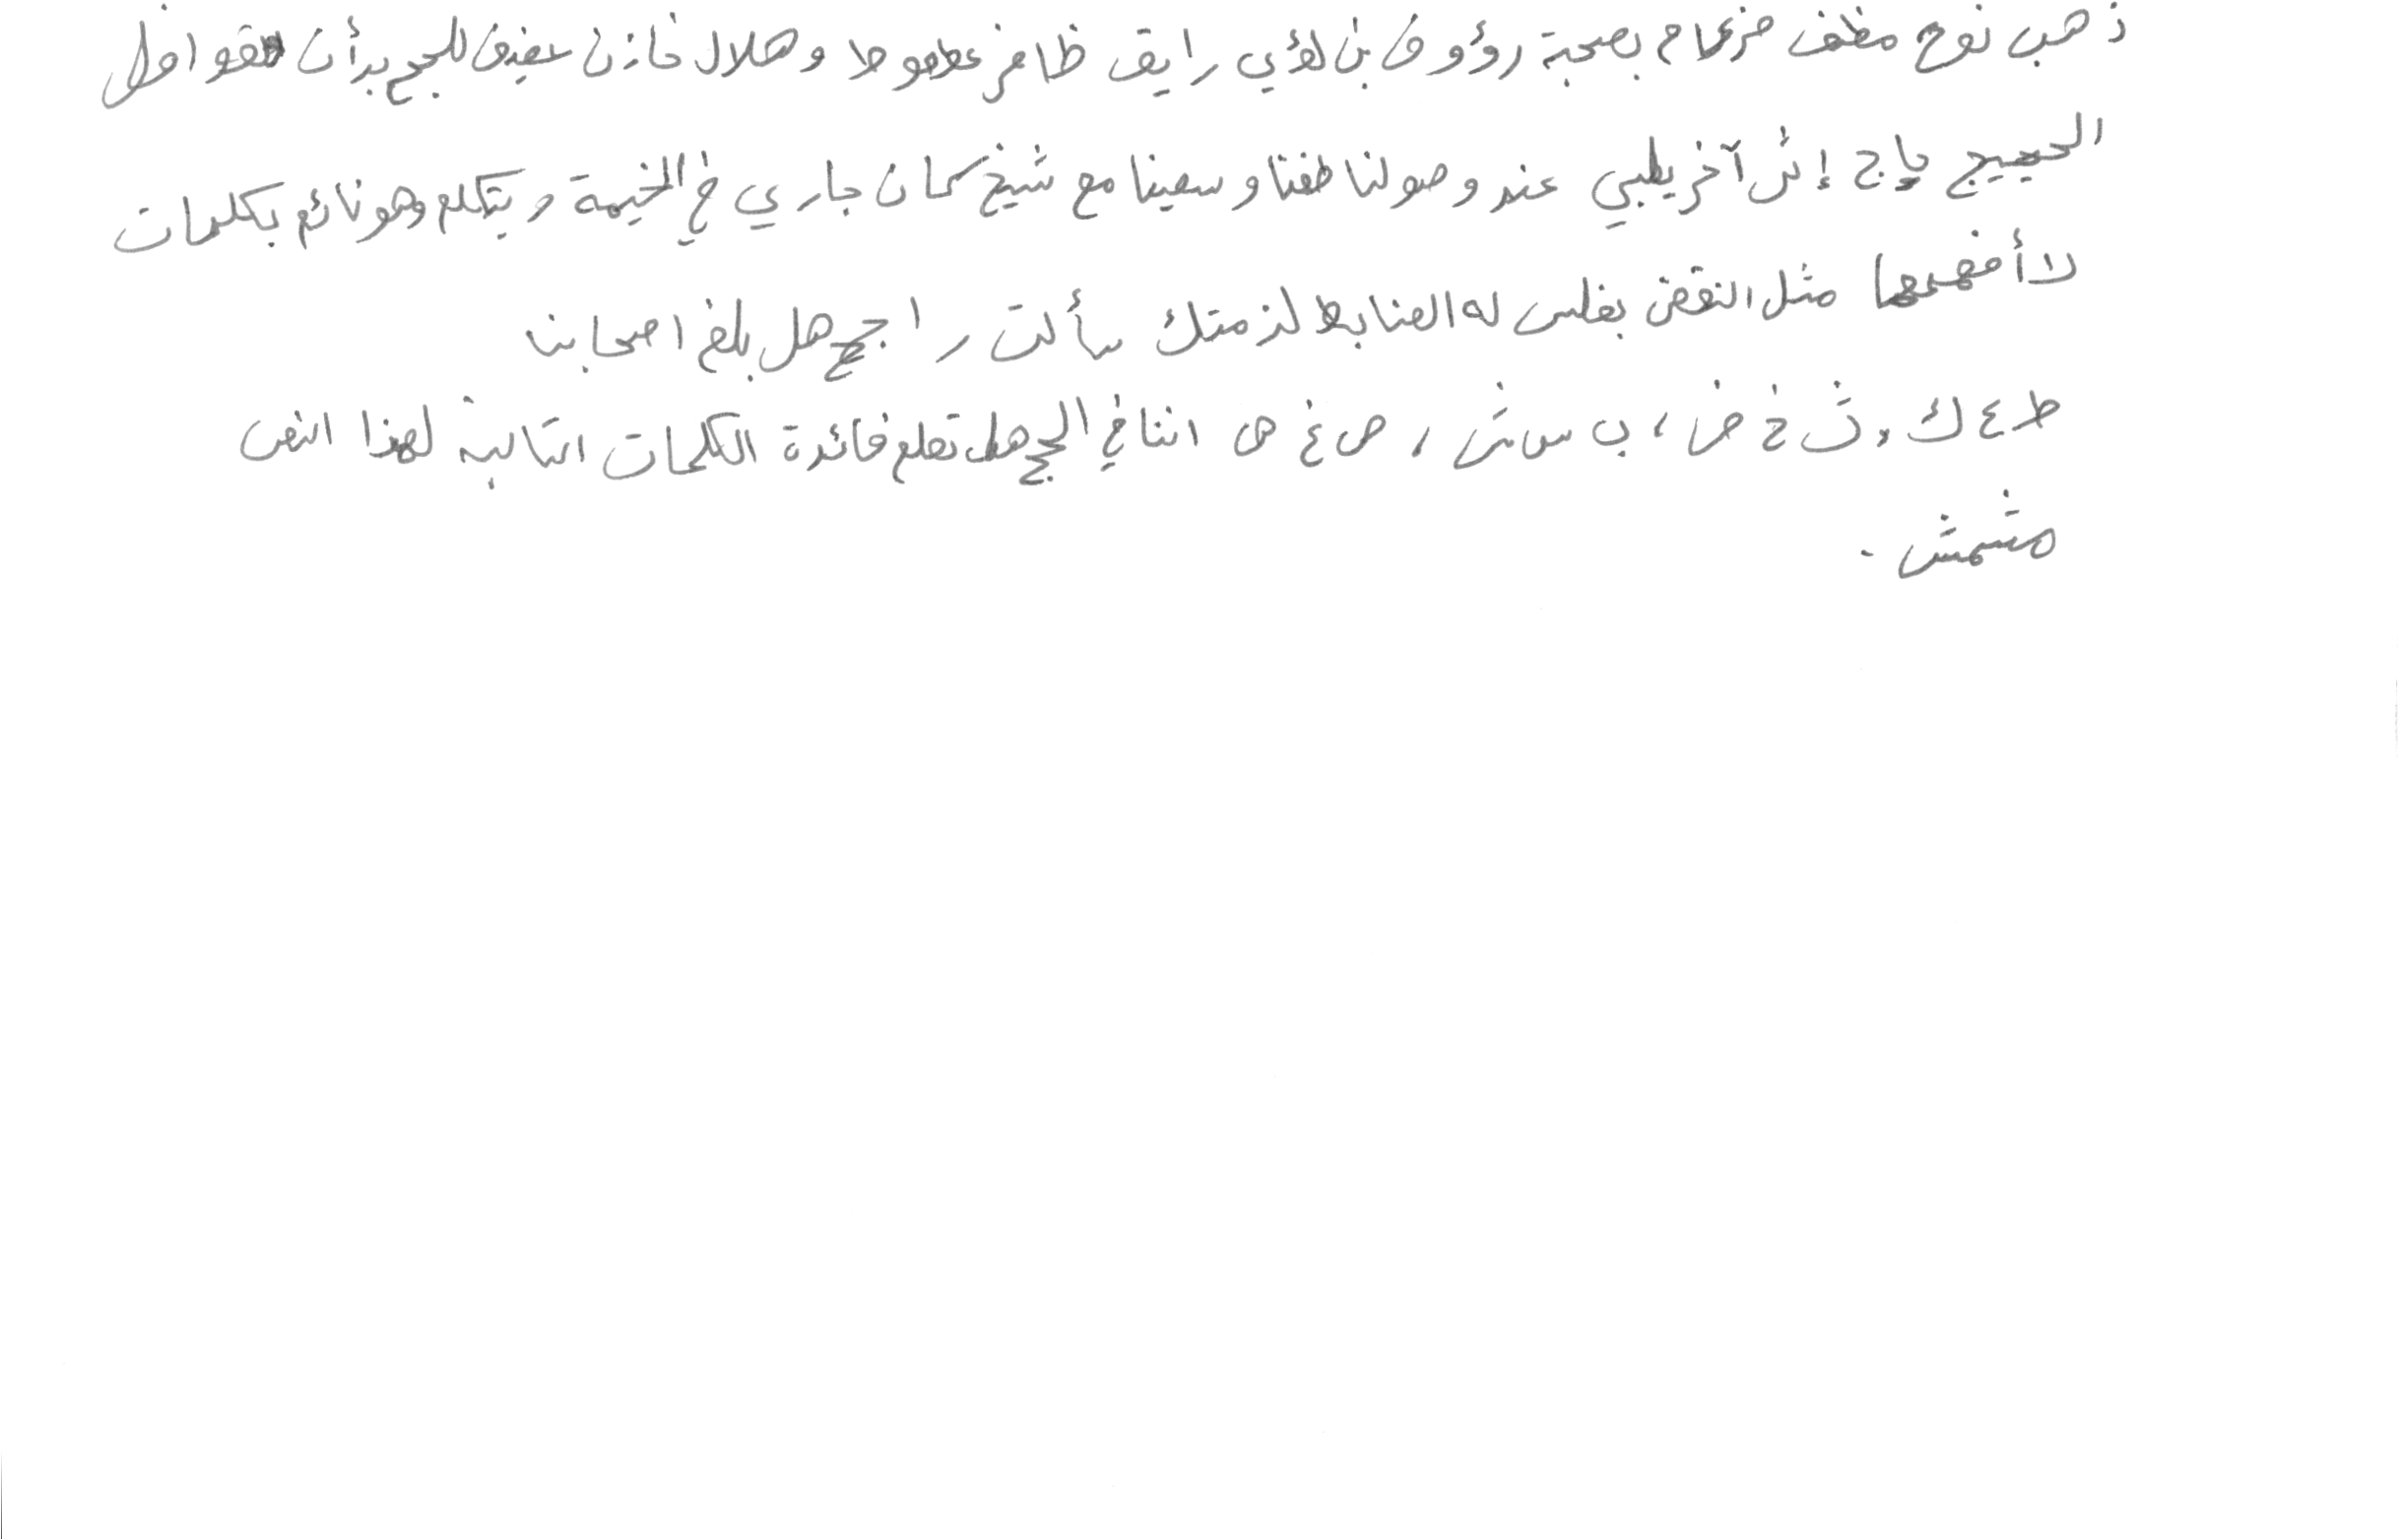 ذهب نوح مظفر ضرغام بصحبة رؤوف بن لؤي رايق ظافر عطعوط وهلال خازن سفيف للحج بدأت القوافل
الحجيج حاج إثر آخر يلبي عند وصولنا طفنا وسعينا مع شيخ كان جاري في الخيمة ويتكلم وهو نائم بكلمات
لا أفهمها مثل النقض بفلس له الضابط لزمتك سألت راجح هل بلغ اصحابن
ط ع ك، ث خ ض، ب س ش، ص غ ص اننا في الحج هل تعلم فائدة الكلمات التالية لهذا النص
مشمش.